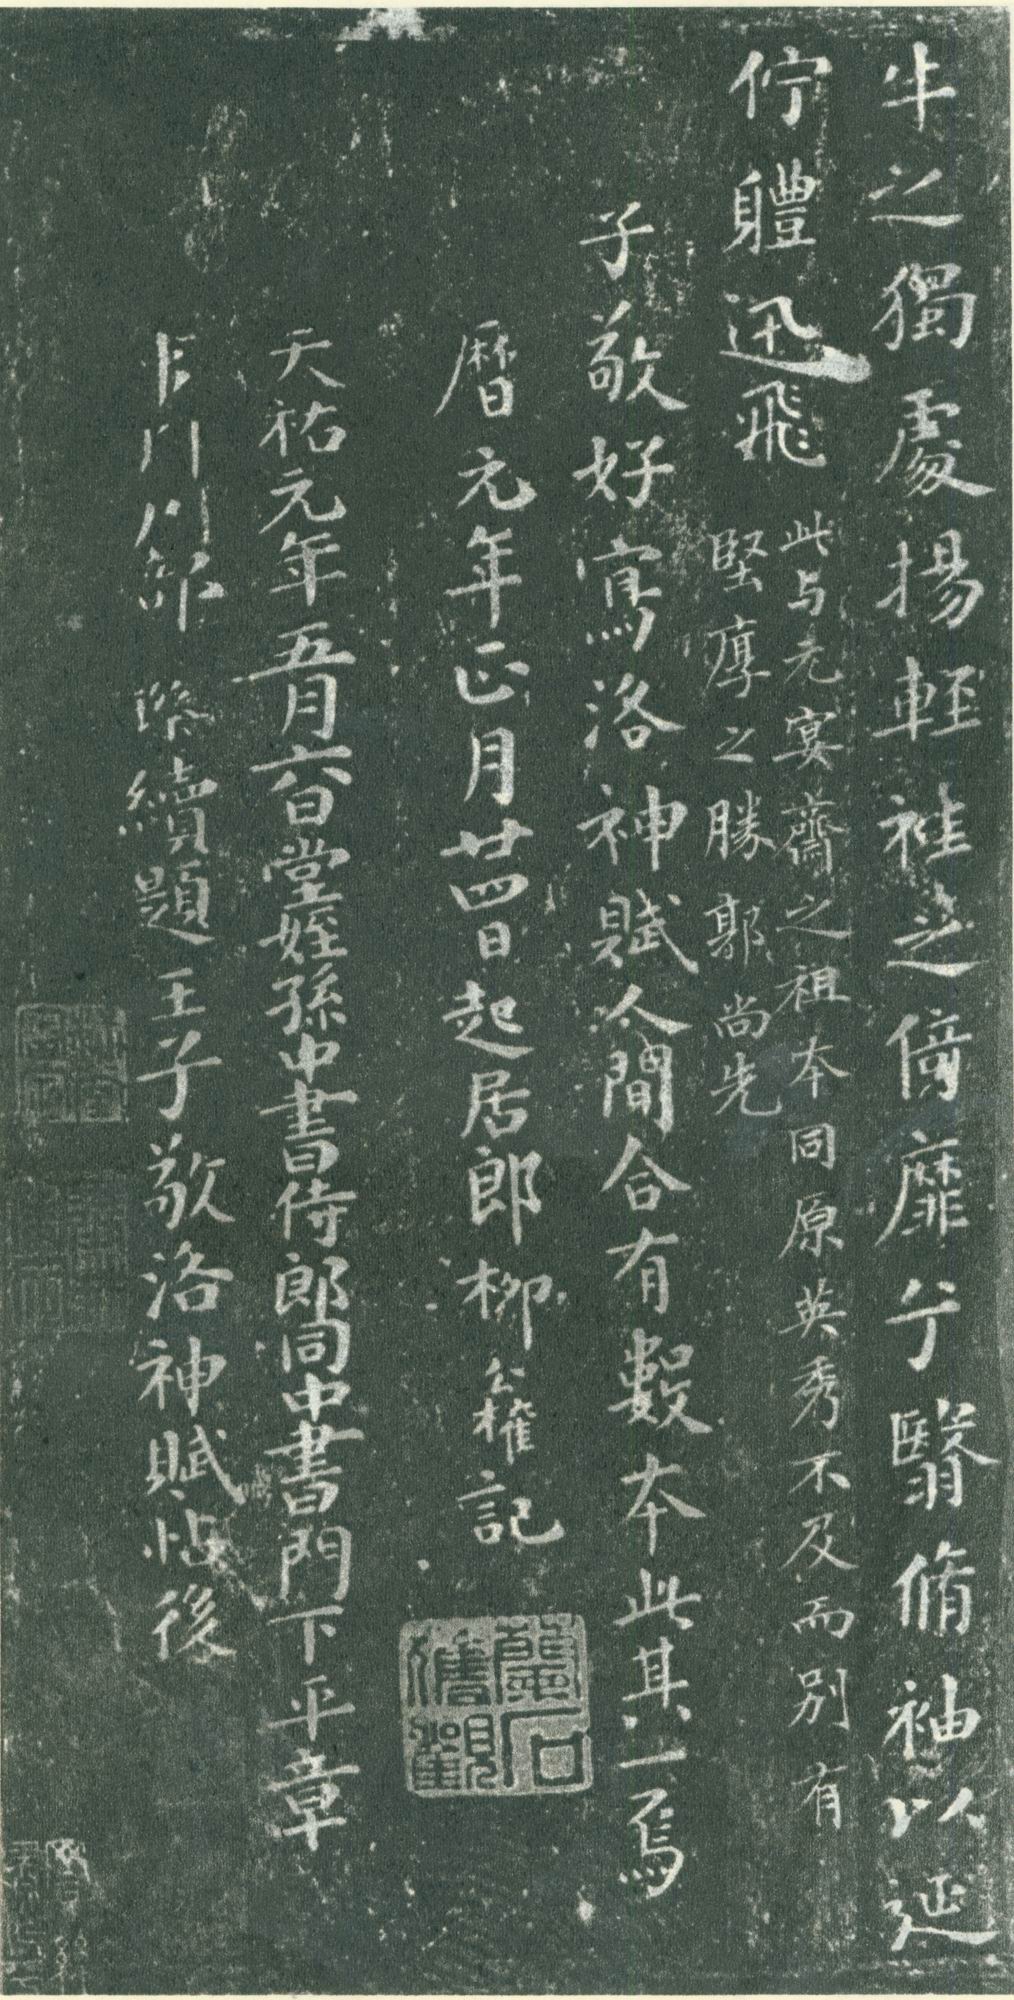 牛之獨處揚輕袿之倚靡兮翳脩袖以延
佇體迅飛
此与元宴齋之祖本同原英秀不及而别有
堅厚之勝郭尚先
子敬好寫洛神賦人間合有數本此其一焉
曆元年正月廿四日起居郎柳公權記
天祐元年五月六日堂姪孫中書侍郎同中書門下平章
部璨續題王子敬洛神賦帖後
蘭石
舊觀